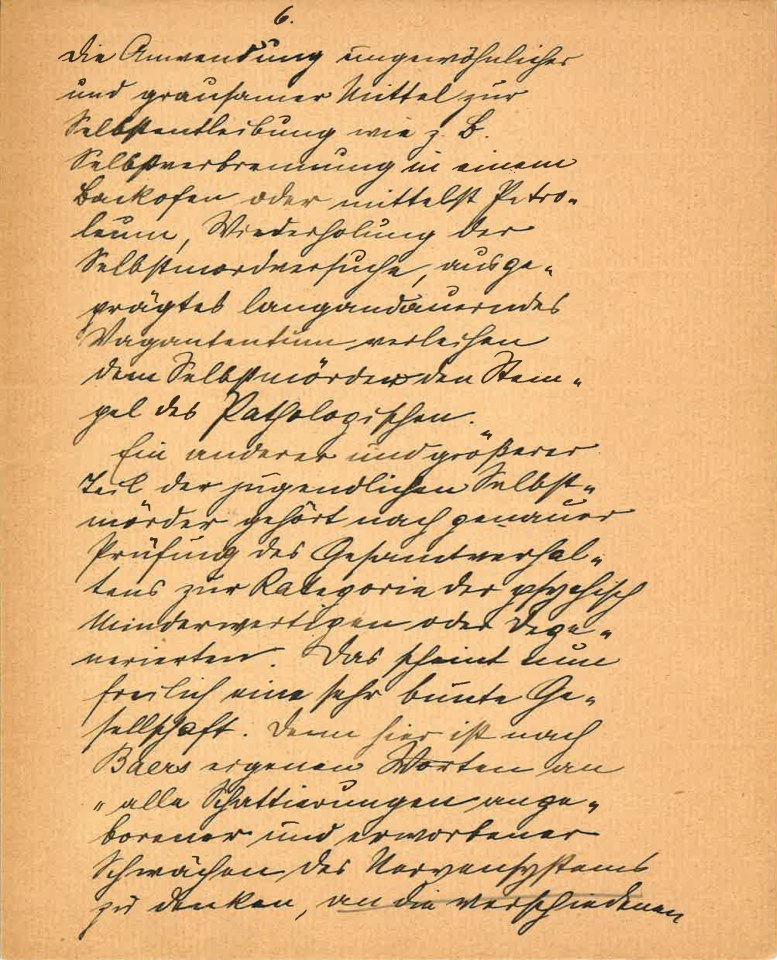 6.
die Anwendung ungewöhnlicher
und grausamer Mittel zur
Selbstentleibung wie z. B.
Selbstverbrennung in einem
Backofen oder mittelst Petro-
leum, Wiederholung der
Selbstmordversuche, ausge-
prägtes langandauerndes
Vagantentum verleihen
dem Selbstmörder den Stem-
pel des Pathologischen.
Ein anderer und größerer
Teil der jugendlichen Selbst-
mörder gehört nach genauer
Prüfung des Gesamtverhal-
tens zur Kategorie der psychisch
Minderwertigen oder Dege-
nerierten. Das scheint nun
freilich eine sehr bunte Ge-
sellschaft. Denn hier ist nach
Baers eigenen Worten an
"alle Schattierungen ange-
borener und erworbener
Schwächen des Nervensystems
zu denken, an die verschiedenen